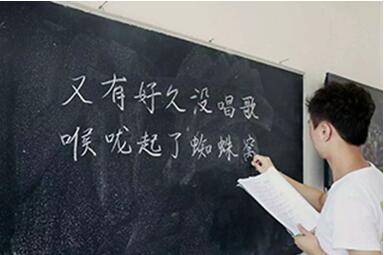 又有好久没唱歌
喉咙起了蜘蛛窝